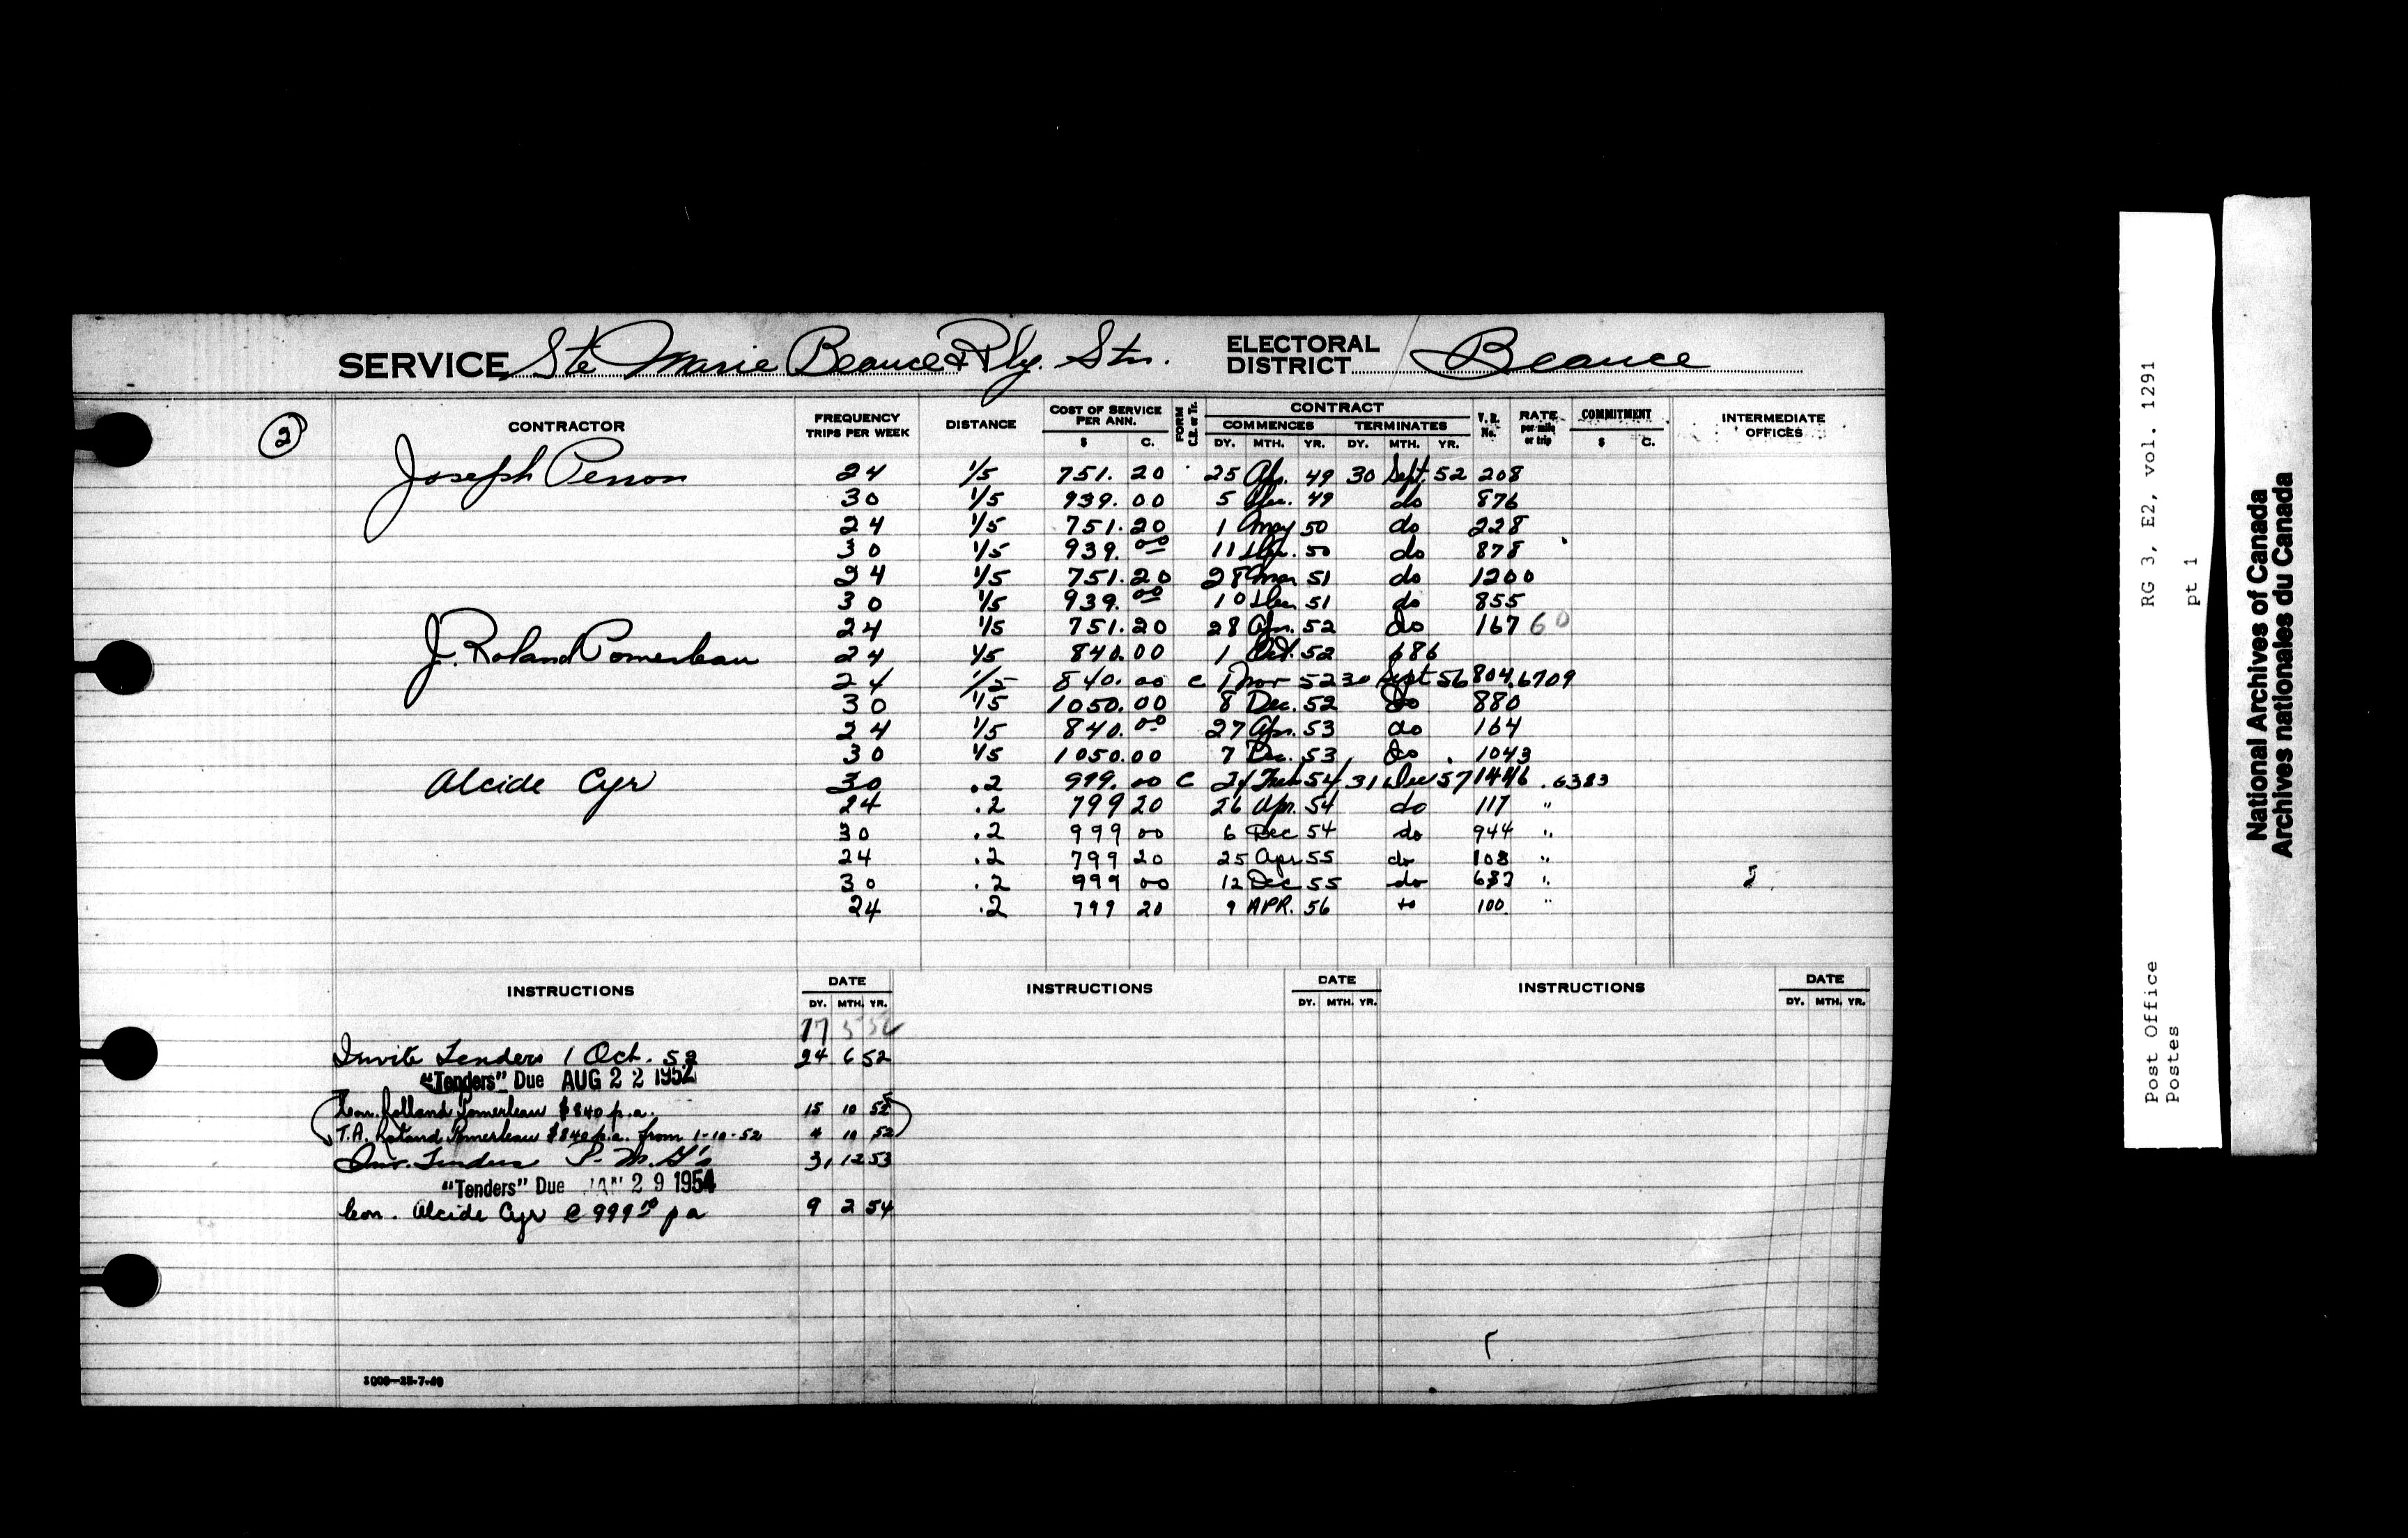 SERVICE Ste Marie Beauce & Rly. Stn. ELECTORAL DISTRICT Beauce
2
CONTRACTOR FREQUENCY TRIPS PER WEEK DISTANCE COST OF SERVICE PER ANN. $ C. FORM C.B. or Tr. CONTRACT COMMENCES DY. MTH. YR. TERMINATES DY. MTH. YR. V.R. No. RATE per mile or trip COMMITMENT $ C. INTERMEDIATE OFFICES
Joseph Perron 24 1/5 751.20 25 Apr. 49 30 Sept. 52 208
30 1/5 939.00 5 Dec. 49 do 876
24 1/5 751.20 1 May 50 do 228
30 1/5 939.00 11 Dec. 50 do 878
24 1/5 751.20 28 Mar 51 do 1200
30 1/5 939.00 10 Dec 51 do 855
24 1/5 751.20 28 Apr. 52 do 167 60
J. Roland Pomerleau 24 1/5 840.00 1 Oct. 52 686
24 1/5 840.00 C 1 Nov 52 30 Sept 56 804 .6709
30 1/5 1050.00 8 Dec. 52 do 880
24 1/5 840.00 27 Apr. 53 do 164
30 1/5 1050.00 7 Dec. 53 do 1043
Alcide Cyr 30 .2 999.00 C Feb 54 31 Dec 57 1446 .6383
24 .2 799 20 26 Apr. 54 do 117 "
30 .2 999 00 6 Dec 54 do 944 "
24 .2 799 20 25 Apr 55 do 108 "
30 .2 999 00 12 Dec 55 do "
24 .2 799 20 9 APR. 56 do 100 "
INSTRUCTIONS DATE DY. MTH. YR. INSTRUCTIONS DATE DY. MTH. YR. INSTRUCTIONS DATE DY. MTH. YR.
17 5 52
Invite Tenders 1 Oct. 52 24 6 52
"Tenders" Due AUG 22 1952
Con. Rolland Pomerleau $840 p.a. 15 10 52
T.A. Roland Pomerleau $840 p.a. from 1-10-52 4 10 52
Inv. Tenders P.M.G's 31 12 53
"Tenders" Due JAN 29 1954
Con. Alcide Cyr @ 999.00 p a 9 2 54
1000-25-7-49
RG 3, E2, vol. 1291
pt 1
Post Office
Postes
National Archives of Canada
Archives nationales du Canada